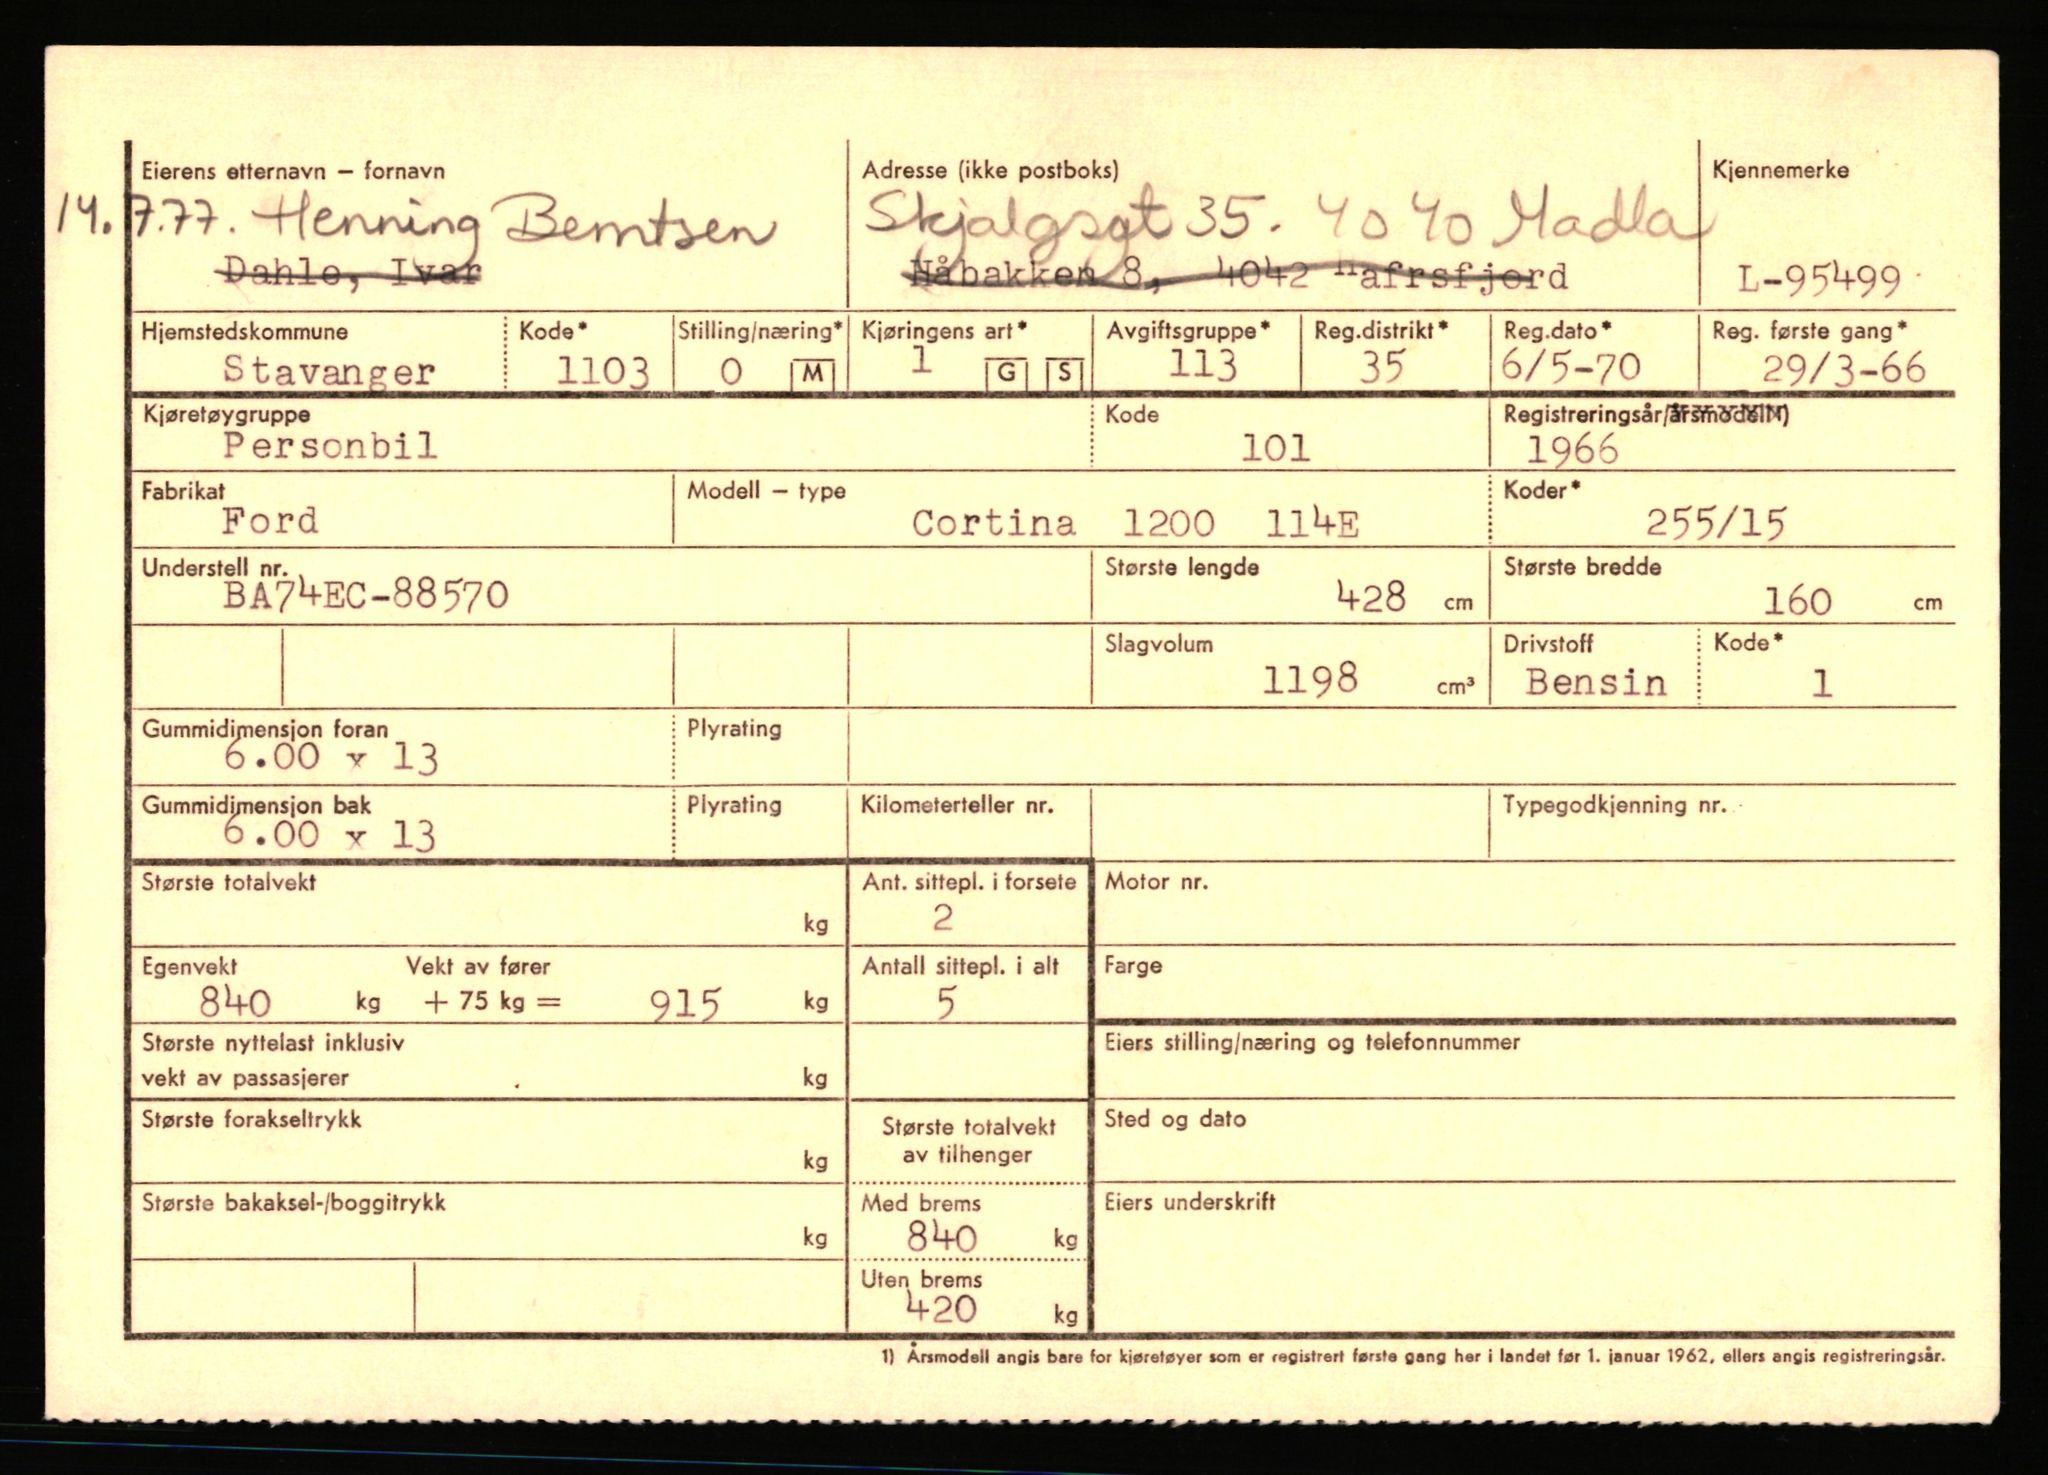 Eierens etternavn – fornavn Adresse (ikke postboks) Kjennemerke
14.7.77. Henning Berntsen Skjalgsgt 35. 4040 Madla
Dahle, Ivar Håbakken 8, 4042 Hafrsfjord L-95499
Hjemstedskommune Kode* Stilling/næring* Kjøringens art* Avgiftsgruppe* Reg.distrikt* Reg.dato* Reg. første gang*
Stavanger 1103 0 M 1 G S 113 35 6/5-70 29/3-66
Kjøretøygruppe Kode Registreringsår/årsmodell1)
Personbil 101 1966
Fabrikat Modell – type Koder*
Ford Cortina 1200 114E 255/15
Understell nr. Største lengde Største bredde
BA74EC-88570 428 cm 160 cm
Slagvolum Drivstoff Kode*
1198 cm³ Bensin 1
Gummidimensjon foran Plyrating
6.00 x 13
Gummidimensjon bak Plyrating Kilometerteller nr. Typegodkjenning nr.
6.00 x 13
Største totalvekt Ant. sittepl. i forsete Motor nr.
kg 2
Egenvekt Vekt av fører Antall sittepl. i alt Farge
840 kg + 75 kg = 915 kg 5
Største nyttelast inklusiv Eiers stilling/næring og telefonnummer
vekt av passasjerer kg
Største forakseltrykk Største totalvekt Sted og dato
av tilhenger
kg
Største bakaksel-/boggitrykk Med brems Eiers underskrift
kg 840 kg
Uten brems
420 kg
1) Årsmodell angis bare for kjøretøyer som er registrert første gang her i landet før 1. januar 1962, ellers angis registreringsår.